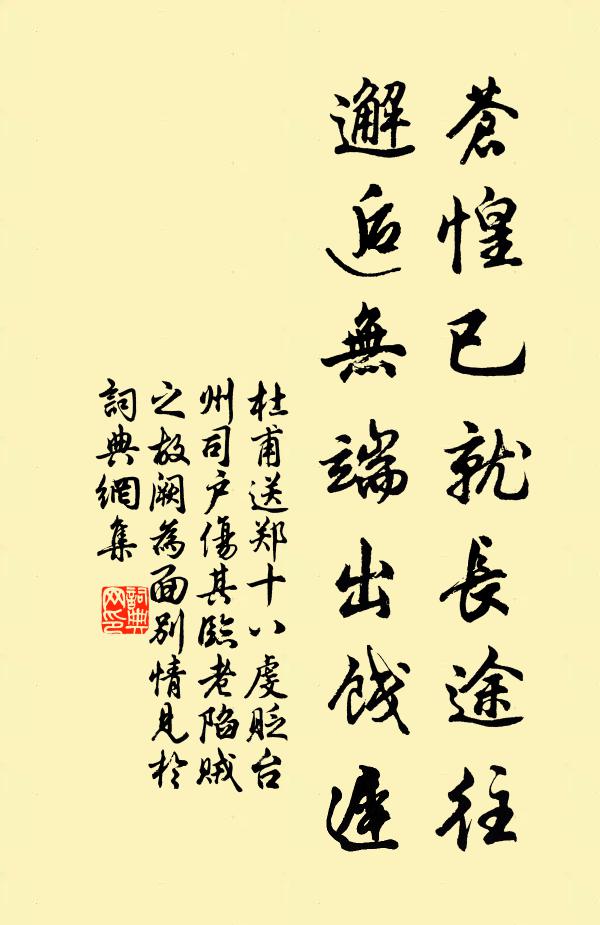 蒼惶已就長途往
邂逅無端出餞遲
杜甫送郑十八虔貶台
州司户傷其臨老陷賊
之故闕為面別情見於
詞典網集
詞典网印